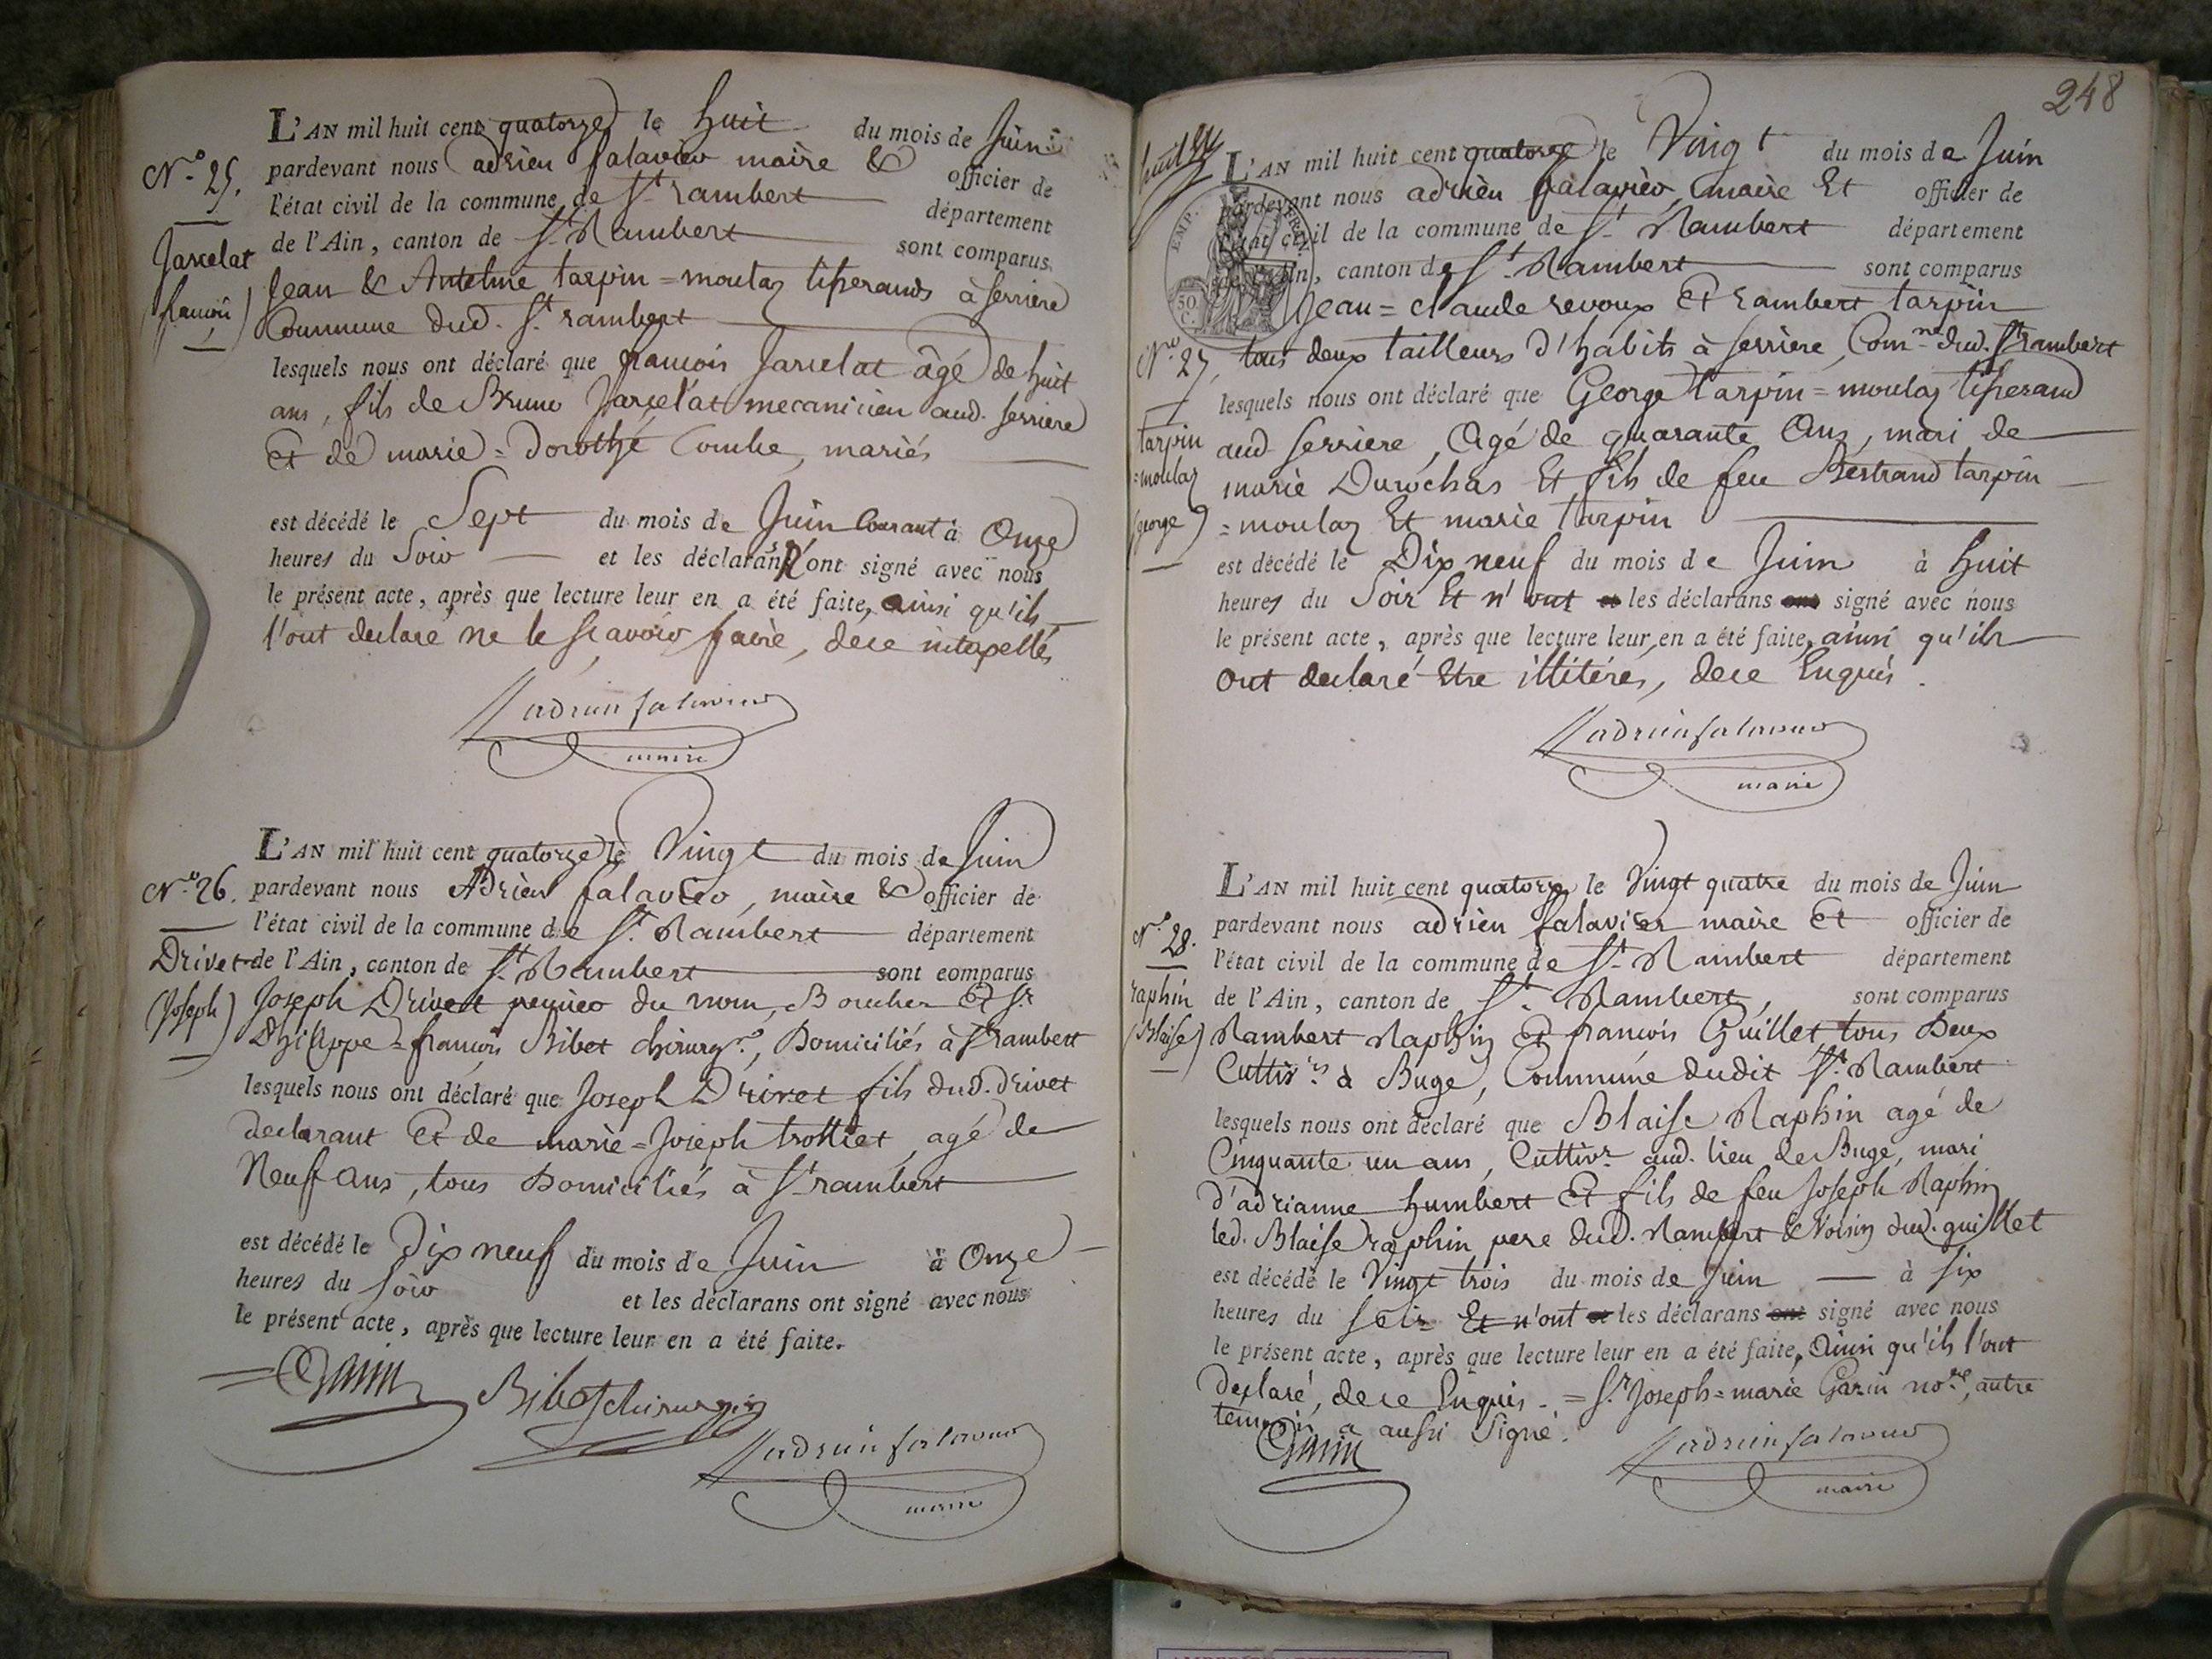 L'AN mil huit cent quatorze le huit du mois de Juin
pardevant nous adrien falavier maire & officier de
N.º 25. l'état civil de la commune de St rambert département
de l'Ain, canton de St Rambert sont comparus
Jarcelat
Jean & Antelme tarpin=moulaz tisserands à serriere
(francois) Commune dud. St rambert
lesquels nous ont déclaré que francois Jarcelat âgé de huit
ans, fils de Bruno Jarcelat mecanicien aud. serriere
et de marie=Dorothé Combe, mariés
est décédé le Sept du mois de Juin Courant à Onze
heures du Soir et les déclarans N'ont signé avec nous
le présent acte, après que lecture leur en a été faite, ainsi qu'ils
l'ont declaré ne le scavoir faire, de ce intepellés
adrien falavier
maire
L'AN mil huit cent quatorze le Vingt du mois de Juin
N.º 26. pardevant nous Adrien falavier, maire & officier de
l'état civil de la commune de St Rambert département
Drivet de l'Ain, canton de St Rambert sont comparus
(Joseph) Joseph Drivet du nom, Boucher Et Sr
Philippe=francois Bibet chirurgn, Domiciliés à St rambert
lesquels nous ont déclaré que Joseph Drivet fils dud. drivet
declarant Et de marie=Joseph trolliet, agé de
Neuf ans, tous Domiciliés à St rambert
est décédé le Dix neuf du mois de Juin à Onze
heures du soir et les déclarans ont signé avec nous
le présent acte, après que lecture leur en a été faite.
Garin
Bibet chirurgin
adrien falavier
maire
248
L'AN mil huit cent quatorze le Vingt du mois de Juin
pardevant nous adrien falavier, maire Et officier de
l'état civil de la commune de St Rambert département
de l'Ain, canton de St Rambert sont comparus
EMP. FRAN.
50 C.
Jean=claude revoux Et rambert tarpin
N.º 27, tous deux tailleurs d'habits à serriere, Comne dud. St rambert
lesquels nous ont déclaré que George tarpin=moulaz tisserand
tarpin aud serriere, Agé de quarante Ans, mari de
=moulaz marie Durochas Et fils de feu Bertrand tarpin
(george) =moulaz Et marie tarpin
est décédé le Dix neuf du mois de Juin à huit
heures du Soir Et n'ont et les déclarans ont signé avec nous
le présent acte, après que lecture leur en a été faite, ainsi qu'ils
ont declaré Etre illitérés, de ce Enquis.
adrien falavier
maire
L'AN mil huit cent quatorze le Vingt quatre du mois de Juin
pardevant nous adrien falavier maire Et officier de
N.º 28. l'état civil de la commune de St Rambert département
raphin de l'Ain, canton de St Rambert, sont comparus
(Blaise) Rambert Raphin Et francois Guillet tous Deux
Cultivrs à Buge, Commune dudit St Rambert
lesquels nous ont déclaré que Blaise Raphin agé de
Cinquante un ans, Cultivr aud. lieu de Buge, mari
d'adrianne humbert Et fils de feu Joseph Raphin
led. Blaise raphin pere dud. Rambert & Voisin dud. guillet
est décédé le Vingt trois du mois de Juin à six
heures du soir Et n'ont et les déclarans ont signé avec nous
le présent acte, après que lecture leur en a été faite, Ainsi qu'ils l'ont
Declaré, de ce Enquis. = Sr Joseph=marie Garin nore, autre
temoin, a aussi Signé.
Garin
adrien falavier
maire